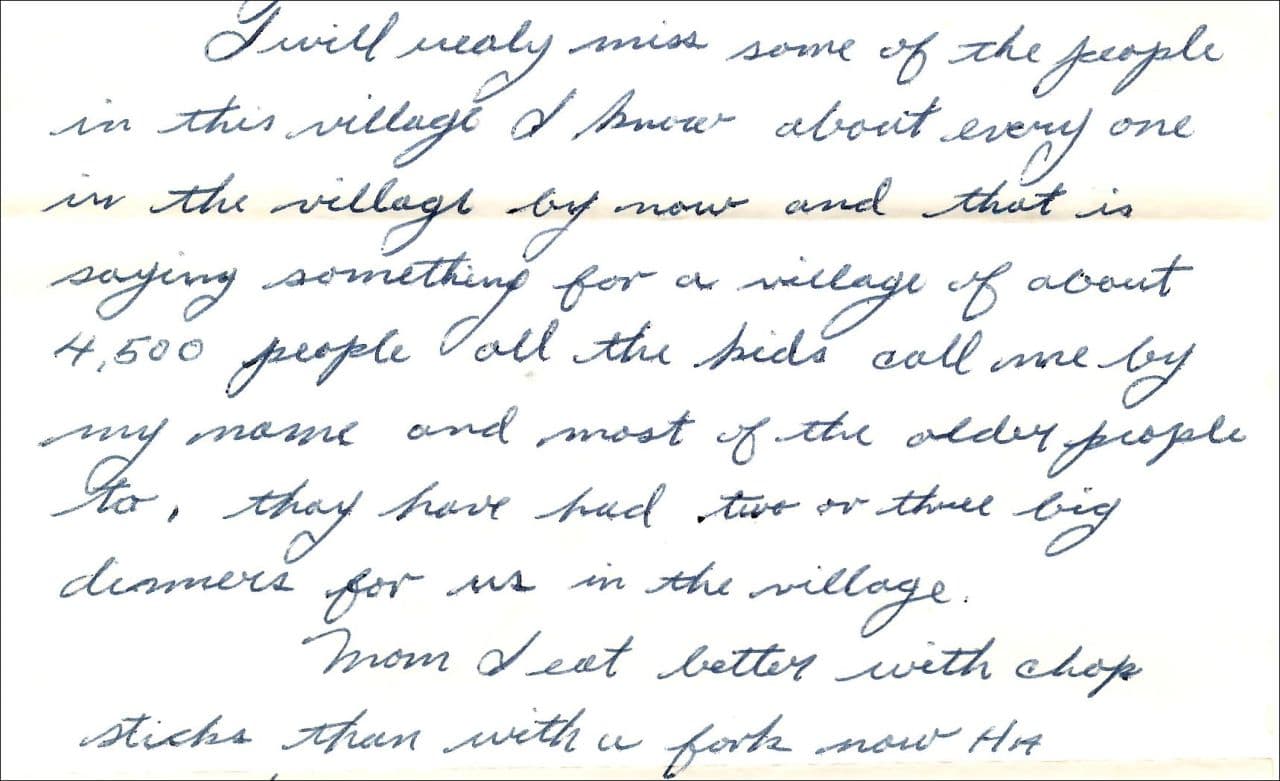 I will realy miss some of the people
in this village I know about every one
in the village by now and that is
saying something for a village of about
4,500 people all the kids call me by
my name and most of the older people
to, thay have had two or three big
dinners for us in the village.
Mom I eat better with chop
sticks than with a fork now HA